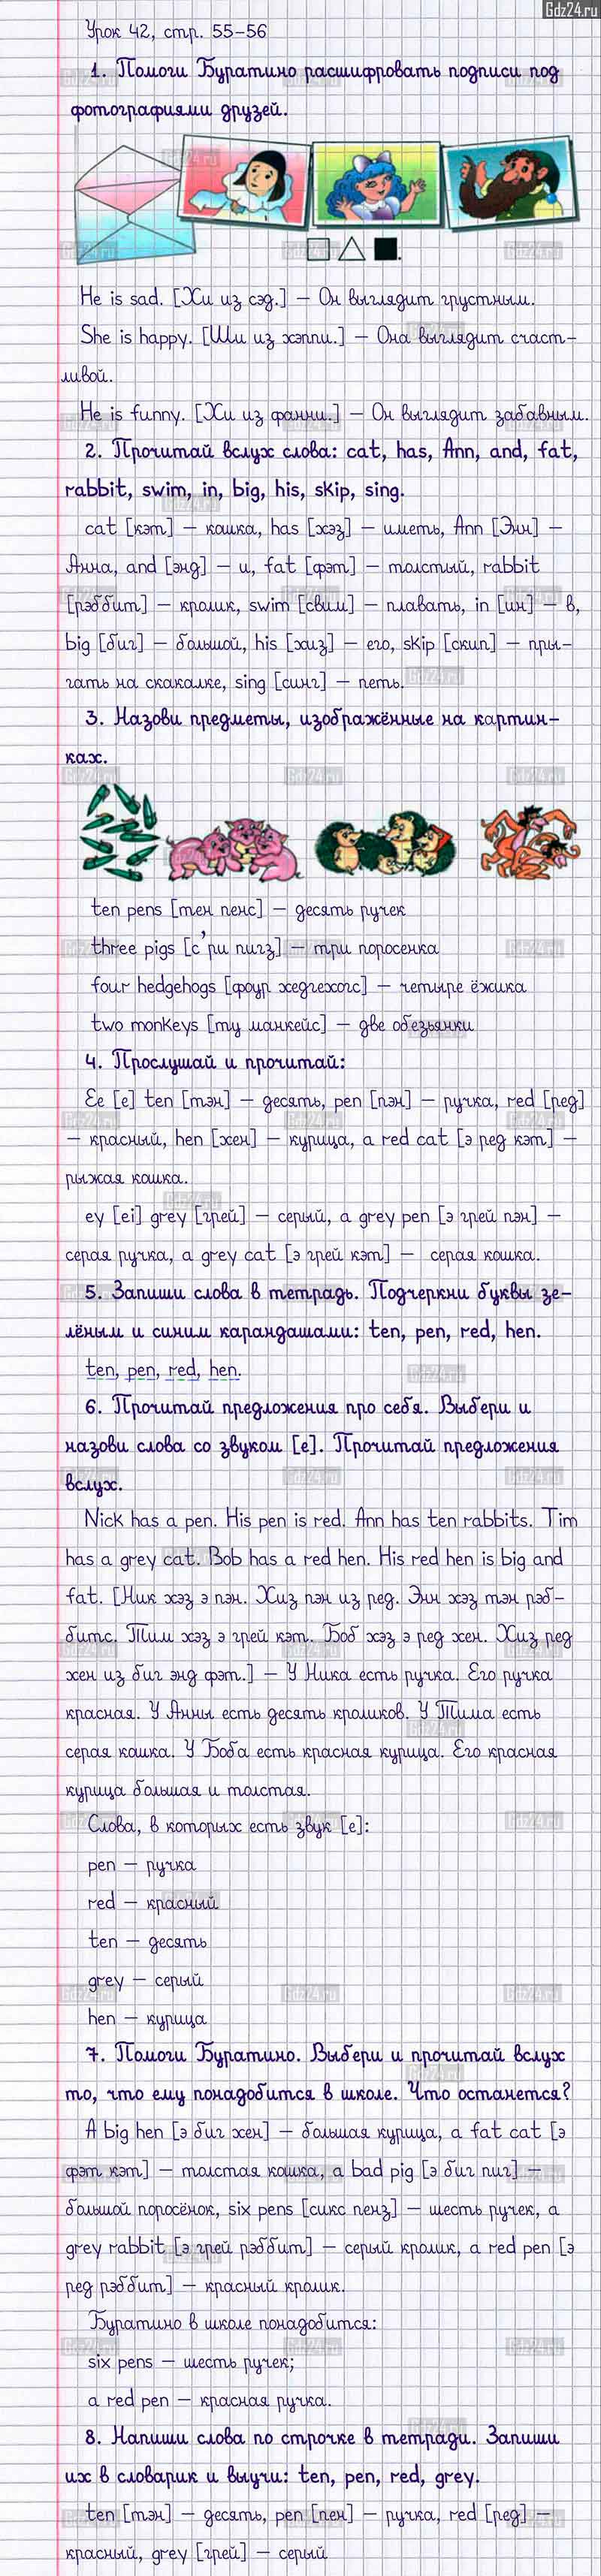 Gdz24.ru
Урок 42, стр. 55-56
1. Помоги Буратино расшифровать подписи под
фотографиями друзей.
He is sad. [Хи из сэд.] – Он выглядит грустным.
She is happy. [Ши из хэппи.] – Она выглядит счаст-
ливой.
He is funny. [Хи из фанни.] – Он выглядит забавным.
2. Прочитай вслух слова: cat, has, Ann, and, fat,
rabbit, swim, in, big, his, skip, sing.
cat [кэт] – кошка, has [хэз] – иметь, Ann [Энн] –
Анна, and [энд] – и, fat [фэт] – толстый, rabbit
[рэббит] – кролик, swim [свим] – плавать, in [ин] – в,
big [биг] – большой, his [хиз] – его, skip [скип] – пры-
гать на скакалке, sing [синг] – петь.
3. Назови предметы, изображённые на картин-
ках.
ten pens [тен пенс] – десять ручек
three pigs [с'ри пигз] – три поросенка
four hedgehogs [фоур хедгехогс] – четыре ёжика
two monkeys [ту манкейс] – две обезьянки
4. Прослушай и прочитай:
Ee [e] ten [тэн] – десять, pen [пэн] – ручка, red [ред]
– красный, hen [хен] – курица, a red cat [э ред кэт] –
рыжая кошка.
ey [ei] grey [грей] – серый, a grey pen [э грей пэн] –
серая ручка, a grey cat [э грей кэт] – серая кошка.
5. Запиши слова в тетрадь. Подчеркни буквы зе-
лёным и синим карандашами: ten, pen, red, hen.
ten, pen, red, hen.
6. Прочитай предложения про себя. Выбери и
назови слова со звуком [e]. Прочитай предложения
вслух.
Nick has a pen. His pen is red. Ann has ten rabbits. Tim
has a grey cat. Bob has a red hen. His red hen is big and
fat. [Ник хэз э пэн. Хиз пэн из ред. Энн хэз тэн рэб-
битс. Тим хэз э грей кэт. Боб хэз э ред хен. Хиз ред
хен из биг энд фэт.] – У Ника есть ручка. Его ручка
красная. У Анны есть десять кроликов. У Тима есть
серая кошка. У Боба есть красная курица. Его красная
курица большая и толстая.
Слова, в которых есть звук [e]:
pen – ручка
red – красный
ten – десять
grey – серый
hen – курица
7. Помоги Буратино. Выбери и прочитай вслух
то, что ему понадобится в школе. Что останется?
A big hen [э биг хен] – большая курица, a fat cat [э
фэт кэт] – толстая кошка, a bad pig [э биг пиг] –
большой поросёнок, six pens [сикс пенз] – шесть ручек, a
grey rabbit [э грей рэббит] – серый кролик, a red pen [э
ред рэббит] – красный кролик.
Буратино в школе понадобится:
six pens – шесть ручек;
a red pen – красная ручка.
8. Напиши слова по строчке в тетради. Запиши
их в словарик и выучи: ten, pen, red, grey.
ten [тэн] – десять, pen [пен] – ручка, red [ред] –
красный, grey [грей] – серый